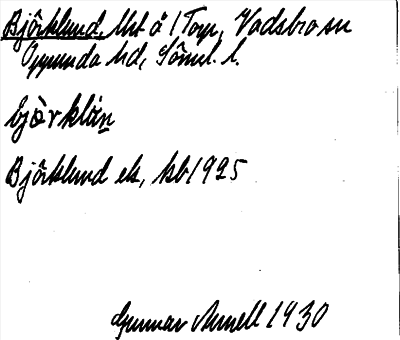 Björklund, lht å 1 Torp, Vadsbro sn
Oppunda hd, Söml. l.
bjò̀rklàn
Björklund ek, kb 1925
Gunnar Arnell 1930